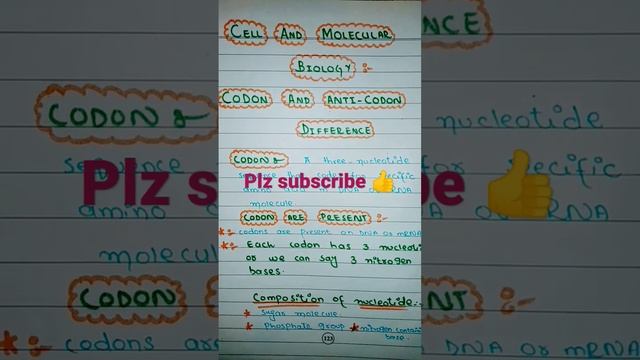 CELL AND MOLECULAR
BIOLOGY :-
CODON AND ANTI-CODON
DIFFERENCE
CODON :- A three-nucleotide
sequence that codes for specific
amino acid DNA or RNA
molecule.
Plz subscribe 👍
CODON ARE PRESENT :-
*:- codons are present on DNA or mRNA
*:- Each codon has 3 nucleoti
or we can say 3 nitrogen
bases.
Composition of nucleotide:-
* Sugar molecule
* Phosphate group * nitrogen contain
base.
123
NCE
CODON :-
nucleotide
sequence for specific
amino or RNA
Plz subscribe 👍
molecul
CODON NT :-
*:- codons are DNA or mRNA